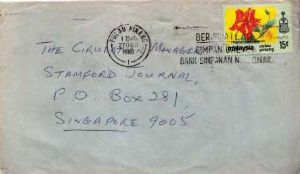 PULAU PINANG
27 OC
1980
1
SIMPAN
BANK SIMPANAN N
malaysia
pulau pinang
15¢
THE CIRCULATION MANAGER
STAMFORD JOURNAL,
P.O. BOX 281,
SINGAPORE 9005